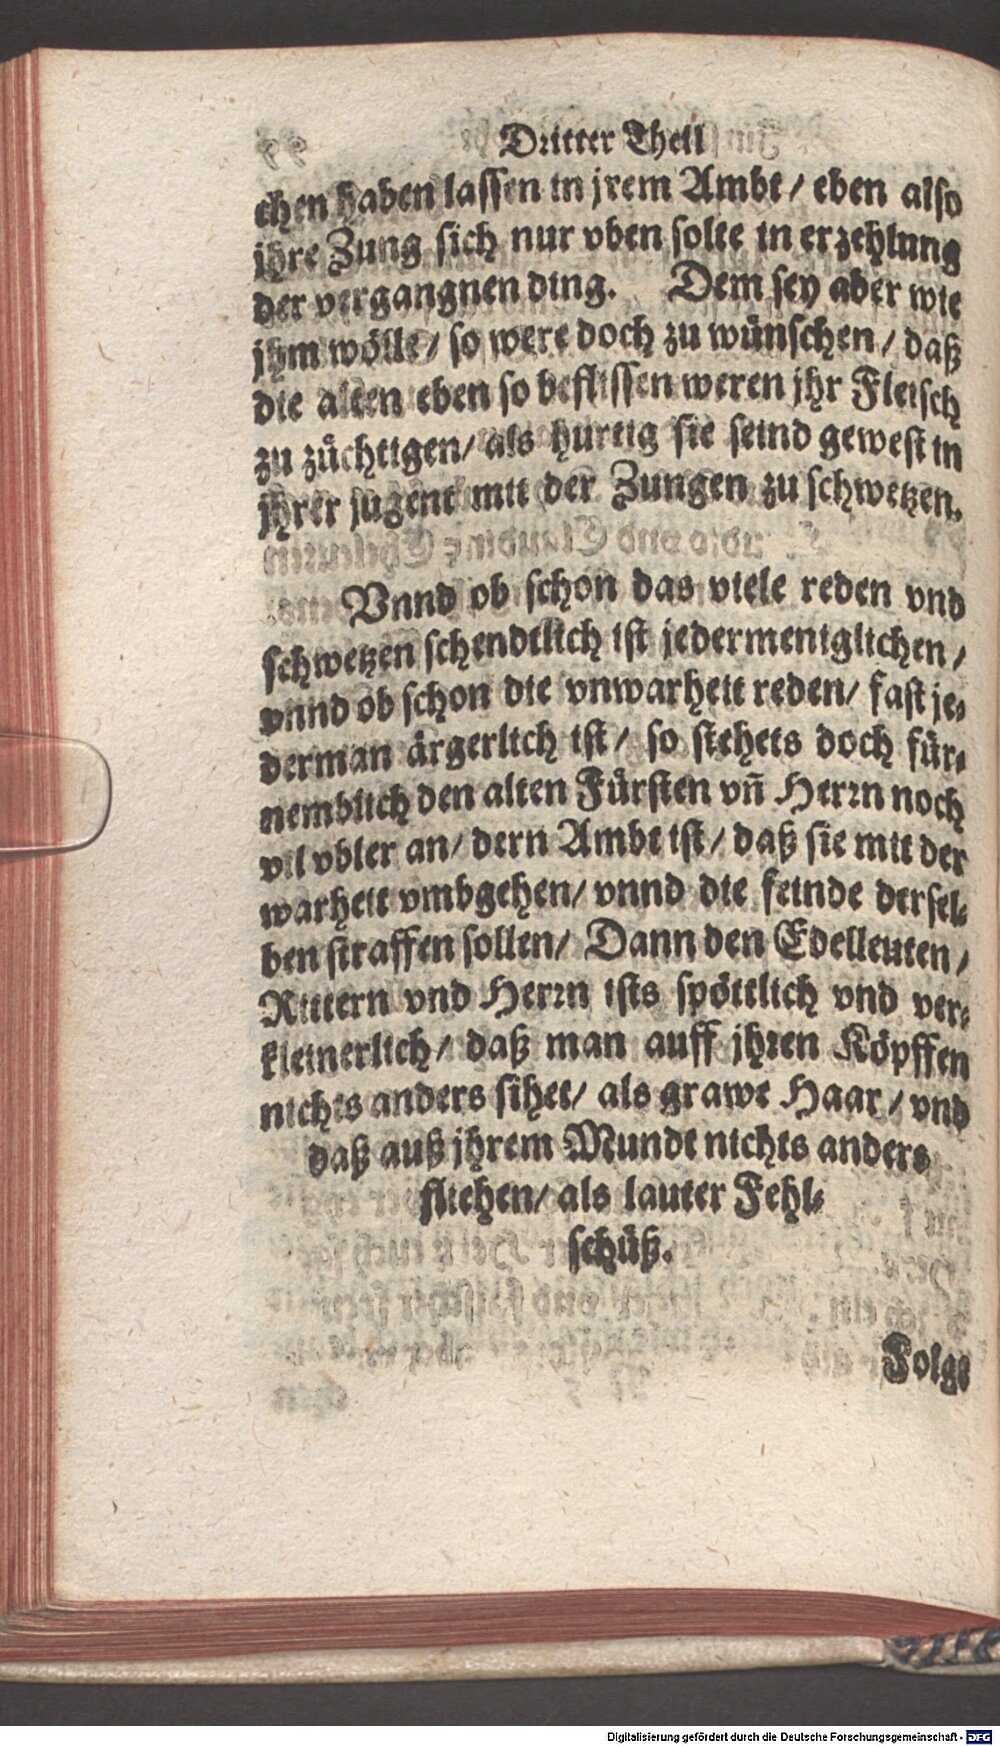 Dritter Theil
chen haben lassen in jrem Ambt / eben also
jhre Zung sich nur vben solte in erzehlung
der vergangnen ding. Dem sey aber wie
jhm wölle / so were doch zu wünschen / daß
die alten eben so beflissen weren jhr Fleisch
zu züchtigen / als hurtig sie seind gewest in
jhrer jugent mit der Zungen zu schwetzen.
Vnnd ob schon das viele reden vnd
schwetzen schendtlich ist jedermeniglichen /
vnnd ob schon die vnwarheit reden / fast je-
derman ärgerlich ist / so stehets doch für-
nemblich den alten Fürsten vñ Herrn noch
vil vbler an / dern Ambt ist / daß sie mit der
warheit vmbgehen / vnnd die feinde dersel-
ben straffen sollen / Dann den Edelleuten /
Rittern vnd Herrn ists spöttlich vnd ver-
kleinerlich / daß man auff jhren Köpffen
nichts anders sihet / als grawe Haar / vnd
daß auß jhrem Mundt nichts anders
fliehen / als lauter Fehl-
schüß.
Folgt
Digitalisierung gefördert durch die Deutsche Forschungsgemeinschaft - DFG